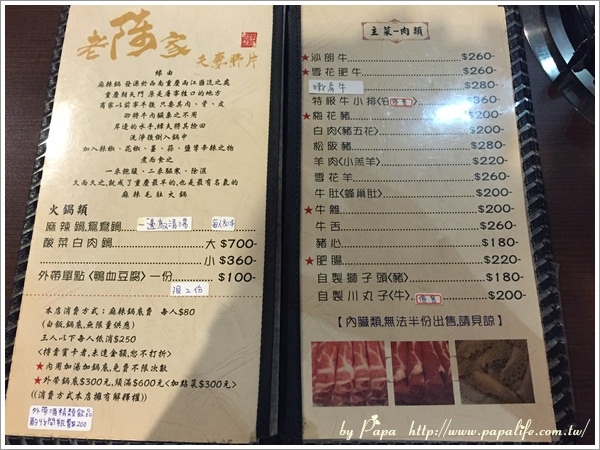 老陳家
天尊將片
緣由
麻辣鍋 發源於西南重慶兩江匯流之處
重慶朝天門 原是屠宰牲口的地方
商家以前宰牛後 只要其肉、骨、皮
卻將牛內臟棄之不用
岸邊的水手,縴夫將撿回
洗淨後倒入鍋中
加入辣椒、花椒、薑、蒜、鹽等辛辣之物
煮而食之
一來飽腹、二來驅寒、除濕
久而久之,就成了重慶最早的,也是最有名氣的
麻辣毛肚火鍋
火鍋類
麻辣鍋,鴛鴦鍋
酸菜白肉鍋 大 $700-
小 $360-
外帶單點<鴨血豆腐>一份 $100-
限2份
本店消費方式:麻辣鍋底費 每人$80
(白飯,鍋底,無限量供應)
三人以下每人低消$250
<持貴賓卡者,未達金額,恕不打折>
★內用加湯加鍋底,免費不限次數
★外帶鍋底$300元,須滿$600元<加點菜$300元>
((消費方式本店擁有解釋權))
主菜-肉類
★沙朗牛 $260-
★雪花肥牛 $260-
$280-
特級牛小排 $360-
★梅花豬 $200-
白肉<豬五花> $200-
松阪豬 $280-
羊肉<小羔羊> $220-
雪花羊 $260-
牛肚<蜂巢肚> $200-
★牛雜 $200-
牛舌 $260-
豬心 $180-
★肥腸 $220-
自製獅子頭<豬> $180-
自製川丸子<牛> $200-
【內臟類,無法半份出售,請見諒】
by Papa http://www.papalife.com.tw/